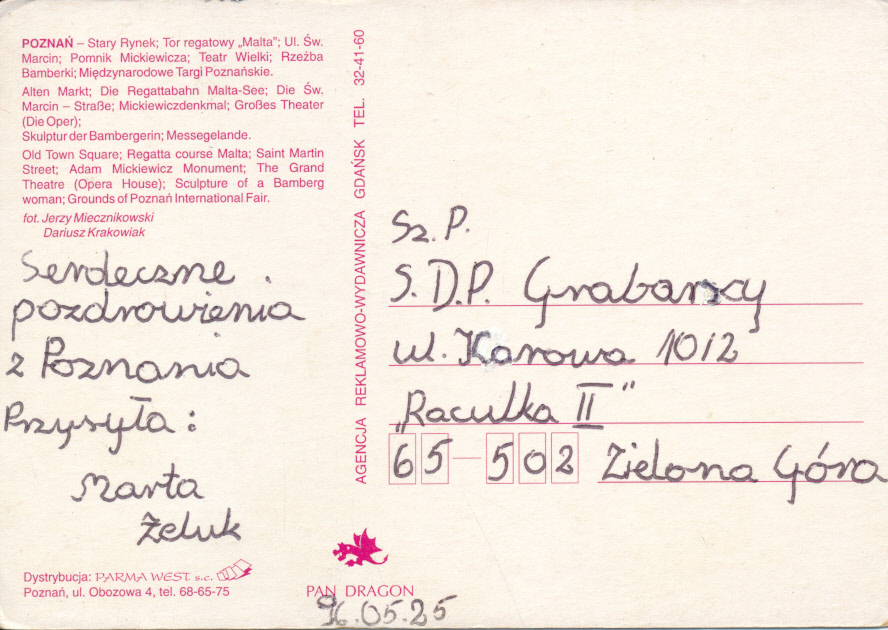 POZNAŃ – Stary Rynek; Tor regatowy „Malta”; Ul. Św.
Marcin; Pomnik Mickiewicza; Teatr Wielki; Rzeźba
Bamberki; Międzynarodowe Targi Poznańskie.
Alten Markt; Die Regattabahn Malta-See; Die Św.
Marcin – Straße; Mickiewiczdenkmal; Großes Theater
(Die Oper);
Skulptur der Bambergerin; Messegelande.
Old Town Square; Regatta course Malta; Saint Martin
Street; Adam Mickiewicz Monument; The Grand
Theatre (Opera House); Sculpture of a Bamberg
woman; Grounds of Poznań International Fair.
fot. Jerzy Miecznikowski
Dariusz Krakowiak
Serdeczne
pozdrowienia
z Poznania
Przysyła:
Marta
Żeluk
Dystrybucja: PARMA WEST s.c.
Poznań, ul. Obozowa 4, tel. 68-65-75
AGENCJA REKLAMOWO-WYDAWNICZA GDAŃSK TEL. 32-41-60
PAN DRAGON
96.05.25
Sz.P.
S.D.P. Grabarscy
ul. Karowa 10/2
„Raculka II”
65-502 Zielona Góra